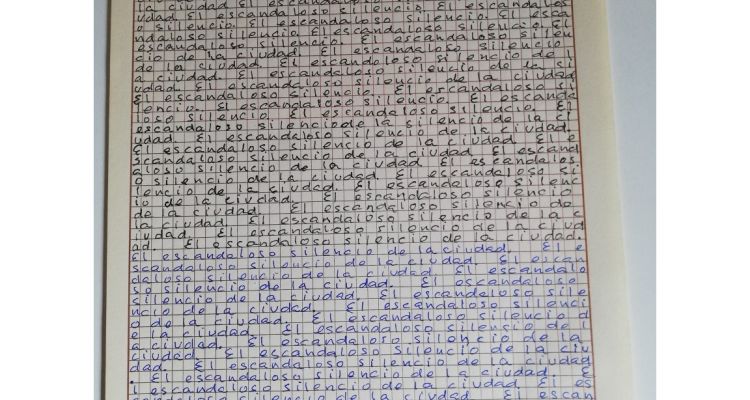 la ciudad El escandaloso silencio
udad El escandaloso silencio. El escandalos
o silencio. El escandaloso silencio. El esca
ndaloso silencio. El escandaloso silencio. El
escandaloso silencio. El escandaloso silen
cio de la ciudad. El escandaloso silencio
de la ciudad. El escandaloso silencio de l
a ciudad. El escandaloso silencio de la ci
udad. El escandaloso silencio de la ciudad
El escandaloso silencio. El escandaloso si
lencio. El escandaloso silencio. El escanda
loso silencio. El escandaloso silencio. El
escandaloso silencio de la silencio de la ci
udad. El escandaloso silencio de la ciudad.
El escandaloso silencio de la ciudad. El e
scandaloso silencio de la ciudad El escand
aloso silencio de la ciudad El escandalos
o silencio de la ciudad. El escandaloso si
lencio de la ciudad. El escandaloso silenc
io de la ciudad. El escandaloso silencio
de la ciudad. El escandaloso silencio de
la ciudad. El escandaloso silencio de la c
iudad. El escandaloso silencio de la ciud
ad. El escandaloso silencio de la ciudad.
El escandaloso silencio de la ciudad. El e
scandaloso silencio de la ciudad. El escan
daloso silencio de la ciudad. El escandalo
so silencio de la ciudad. El escandaloso
silencio de la ciudad. El escandaloso sile
ncio de la ciudad. El escandaloso silenci
o de la ciudad. El escandaloso silencio d
e la ciudad. El escandaloso silencio de l
a ciudad. El escandaloso silencio de la
ciudad. El escandaloso silencio de la ciu
dad. El escandaloso silencio de la ciudad
. El escandaloso silencio de la ciudad. E
l escandaloso silencio de la ciudad. El es
candaloso silencio de la ciudad. El escan